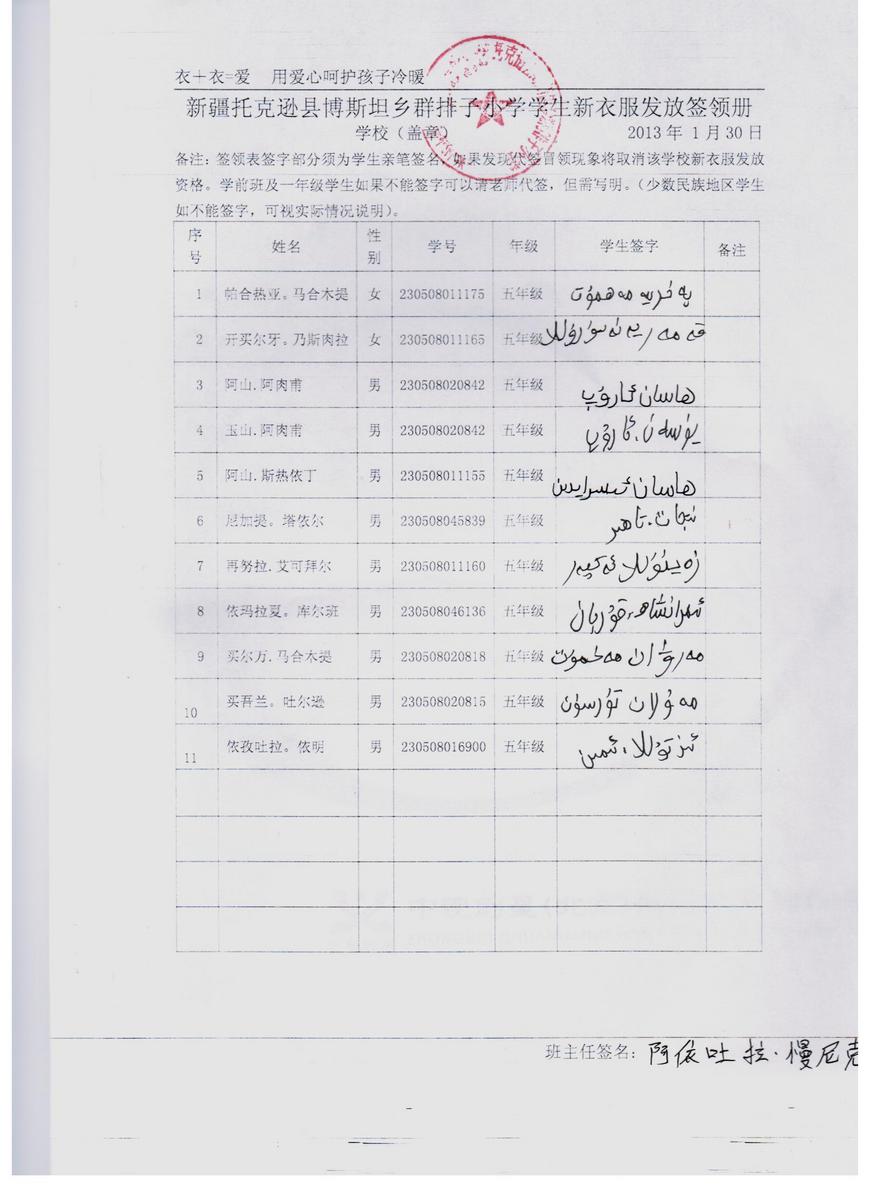 衣＋衣=爱 用爱心呵护孩子冷暖
新疆托克逊县博斯坦乡群排子小学学生新衣服发放签领册
学校（盖章） 2013 年 1 月 30 日
备注：签领表签字部分须为学生亲笔签名，如果发现代签冒领现象将取消该学校新衣服发放
资格。学前班及一年级学生如果不能签字可以请老师代签，但需写明。（少数民族地区学生
如不能签字，可视实际情况说明）。
序号 姓名 性别 学号 年级 学生签字 备注
1 帕合热亚。马合木提 女 230508011175 五年级 پەخرىيە مەھمۇت
2 开买尔牙。乃斯肉拉 女 230508011165 五年级 قەمەرىيە نەسرۇللا
3 阿山.阿肉甫 男 230508020842 五年级 ھاسان ئارۇپ
4 玉山.阿肉甫 男 230508020842 五年级 ئارۇپ
5 阿山.斯热依丁 男 230508011155 五年级 ھاسان
6 尼加提。塔依尔 男 230508045839 五年级 نىجات.تاھىر
7 再努拉.艾可拜尔 男 230508011160 五年级
8 依玛拉夏。库尔班 男 230508046136 五年级 قۇربان
9 买尔万.马合木提 男 230508020818 五年级 مەرۋان مەخمۇت
10 买吾兰。吐尔逊 男 230508020815 五年级 مەۋلان تۇرسۇن
11 依孜吐拉。依明 男 230508016900 五年级 ئىزتۇللا.ئىمىن
班主任签名： 阿依吐拉·慢尼克